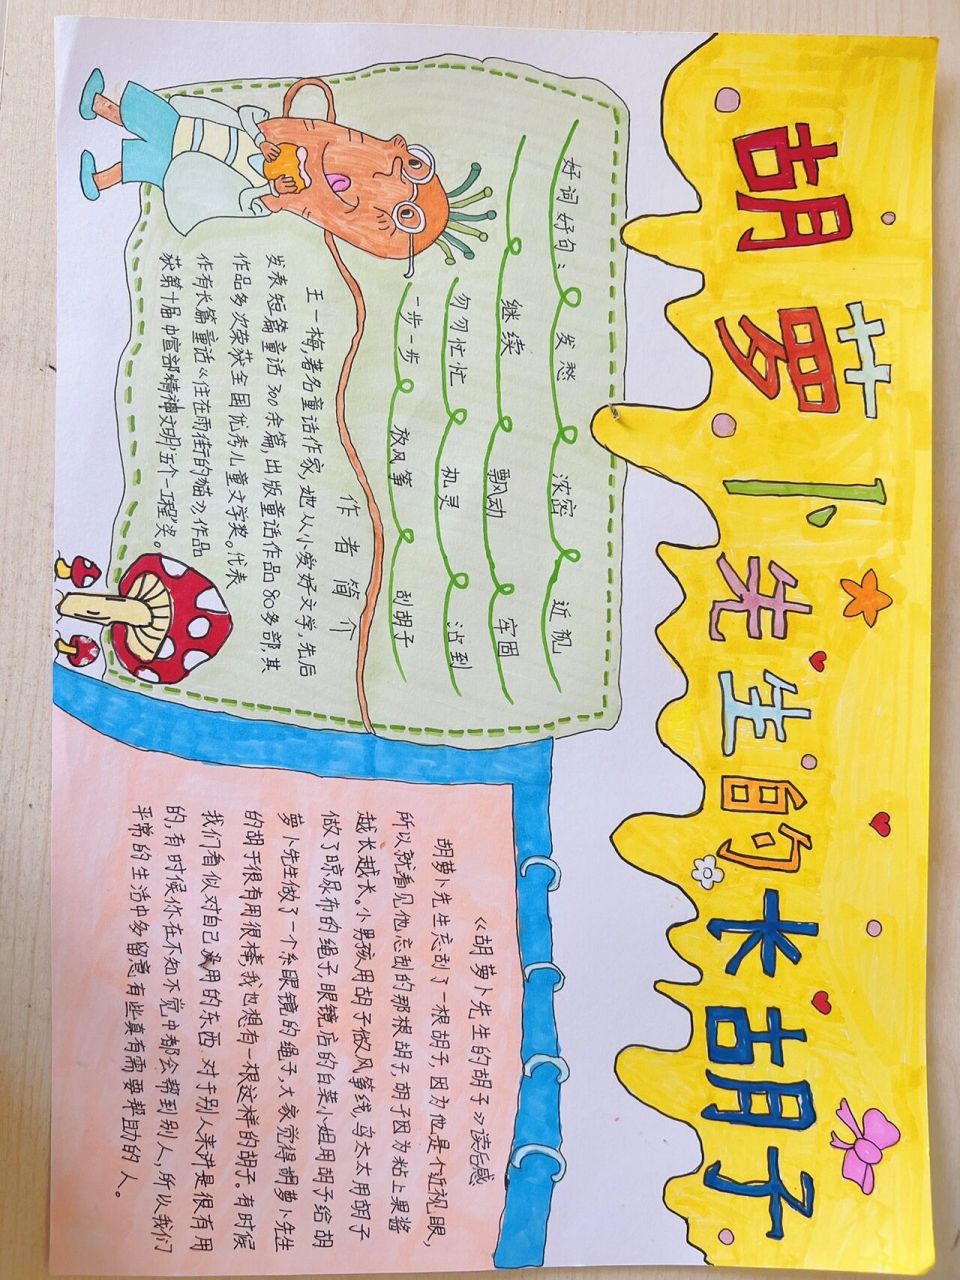 胡萝卜先生的长胡子
好词好句： 发愁 浓密 近视
继续 飘动 牢固
匆匆忙忙 机灵 沾到
一步一步 放风筝 刮胡子
作者简介
王一梅，著名童话作家，她从小爱好文学，先后
发表短篇童话300余篇，出版童话作品80多部，其
作品多次荣获全国优秀儿童文学奖。代表
作有长篇童话《住在雨街的猫》，作品
获第十届中宣部精神文明"五个一工程"奖。
《胡萝卜先生的胡子》读后感
胡萝卜先生忘刮了一根胡子，因为他是个近视眼，
所以就看见他忘刮的那根胡子，胡子因为粘上果酱
越长越长。小男孩用胡子做风筝线，鸟太太用胡子
做了晾尿布的绳子，眼镜店的白菜小姐用胡子给胡
萝卜先生做了一个系眼镜的绳子，大家觉得胡萝卜先生
的胡子很有用很棒，我也想有一根这样的胡子。有时候
我们看似对自己没用的东西，对于别人来讲是很有用
的，有时候你在不知不觉中都会帮到别人，所以我们
平常的生活中多留意有些真有需要帮助的人。